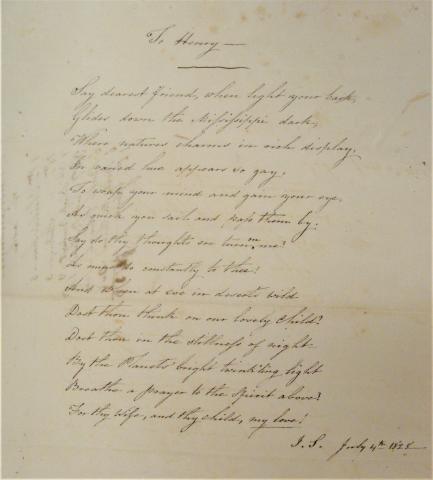 To Henry —
Say dearest friend, when light your bark,
Glides down the Mississippi dark,
Where natures charms in rich display,
In varied hue appears so gay,
To wrap your mind and gain your eye,
As quick you sail and pass them by:
Say do thy thoughts on me?
As mine do constantly to thee!
And when at eve in deserts wild
Dost thou think on our lovely child?
Dost thou in the stillness of night
By the Planets bright twinkling light
Breathe a prayer to the Spirit above?
For thy Wife, and thy child, my love!
J. S. July 4th